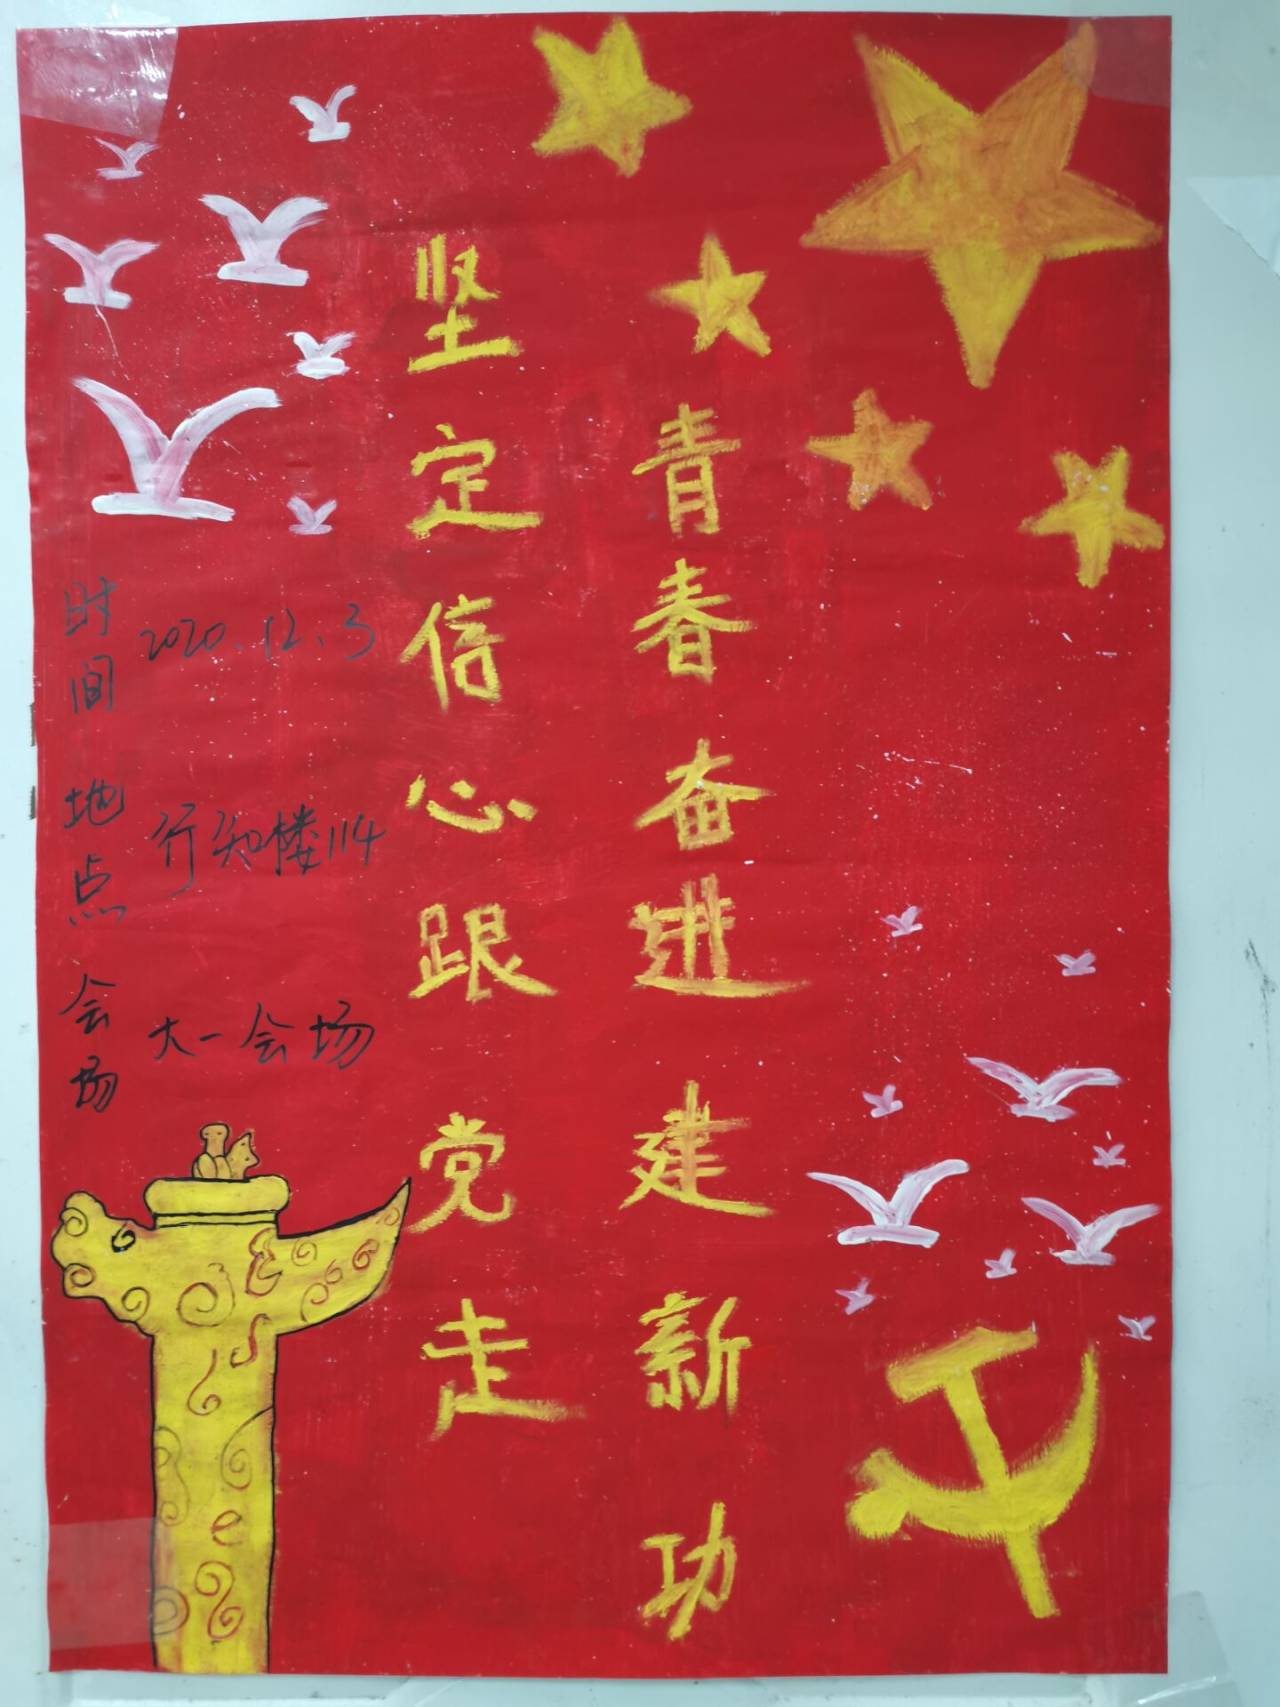 坚定信心跟党走
青春奋进建新功
时间 2020.12.3
地点 行知楼114
会场 大一会场